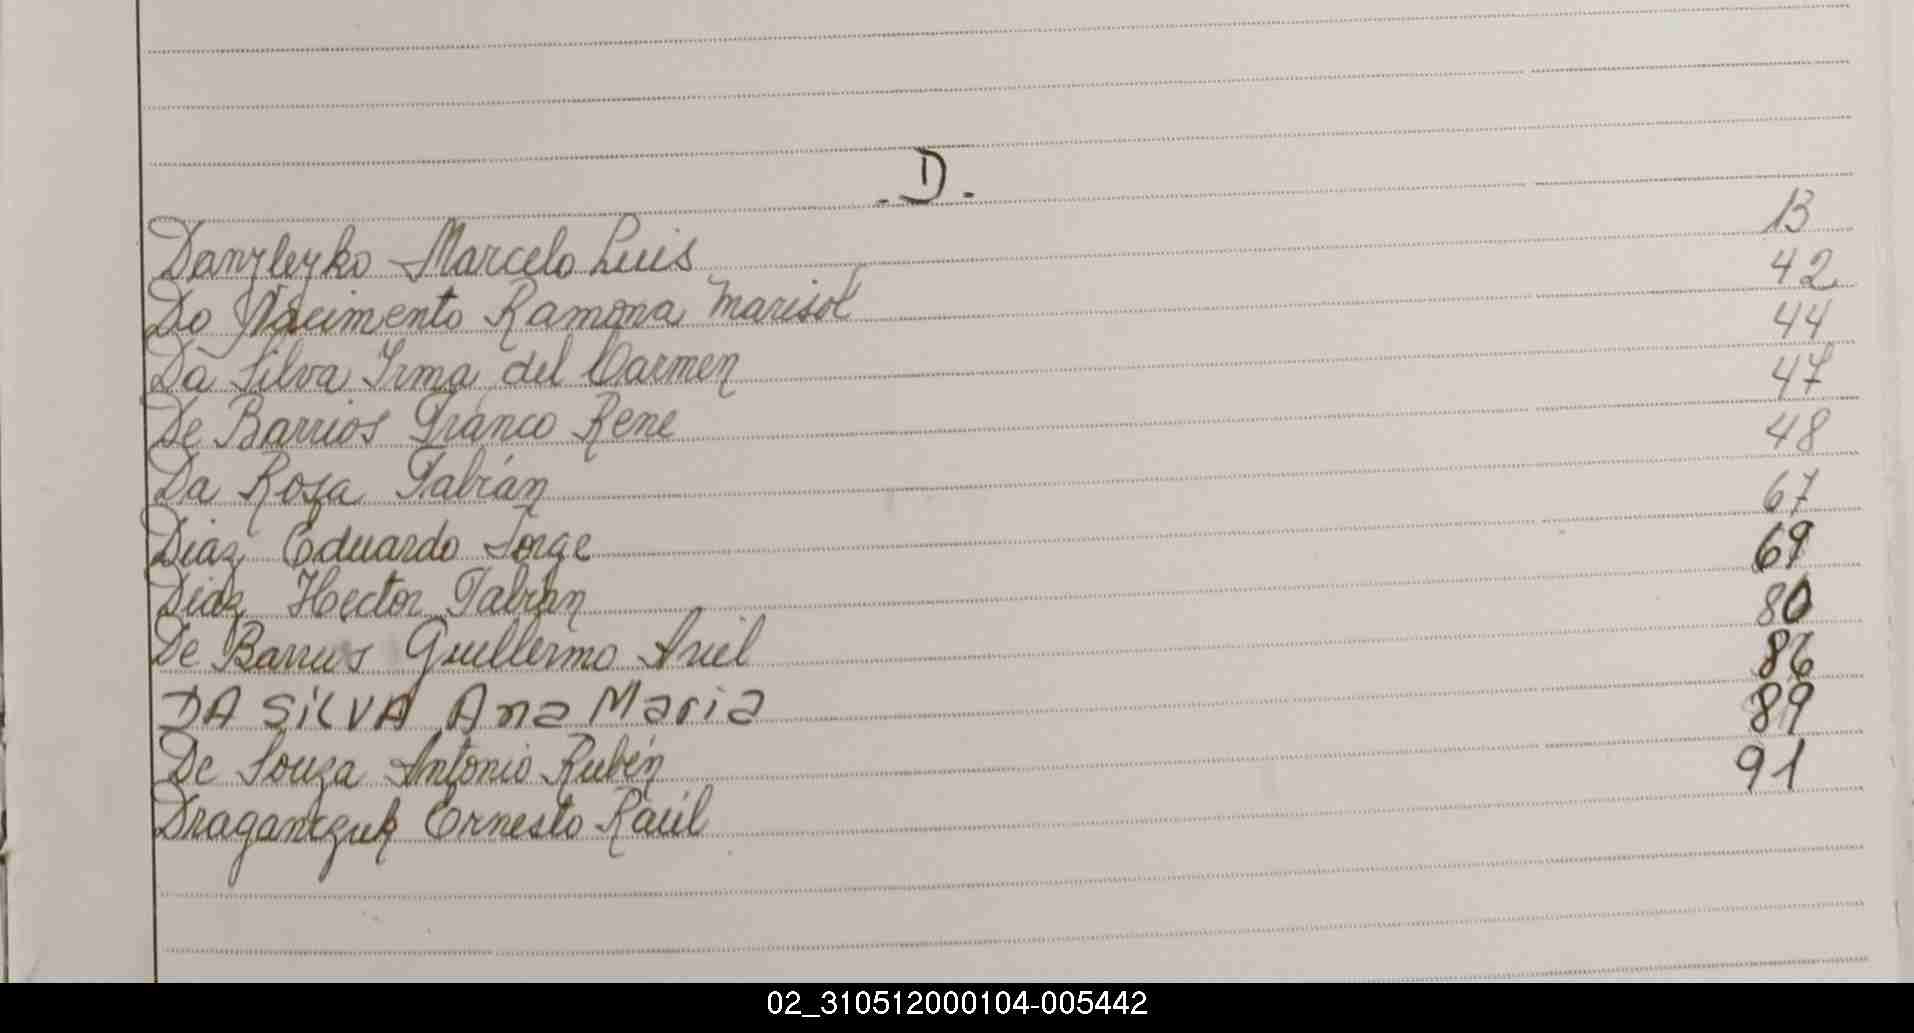 .D.
Danzleyko Marcelo Luis 13
Do Nacimento Ramona Marisol 42
Da Silva Irma del Carmen 44
De Barrios Franco Rene 47
Da Roza Fabián 48
Diaz Eduardo Jorge 67
Diaz Hector Fabián 69
De Barrus Guillermo Ariel 80
DA SILVA Ana Maria 86
De Souza Antonio Rubén 89
Draganczuk Ernesto Raúl 91
02_310512000104-005442